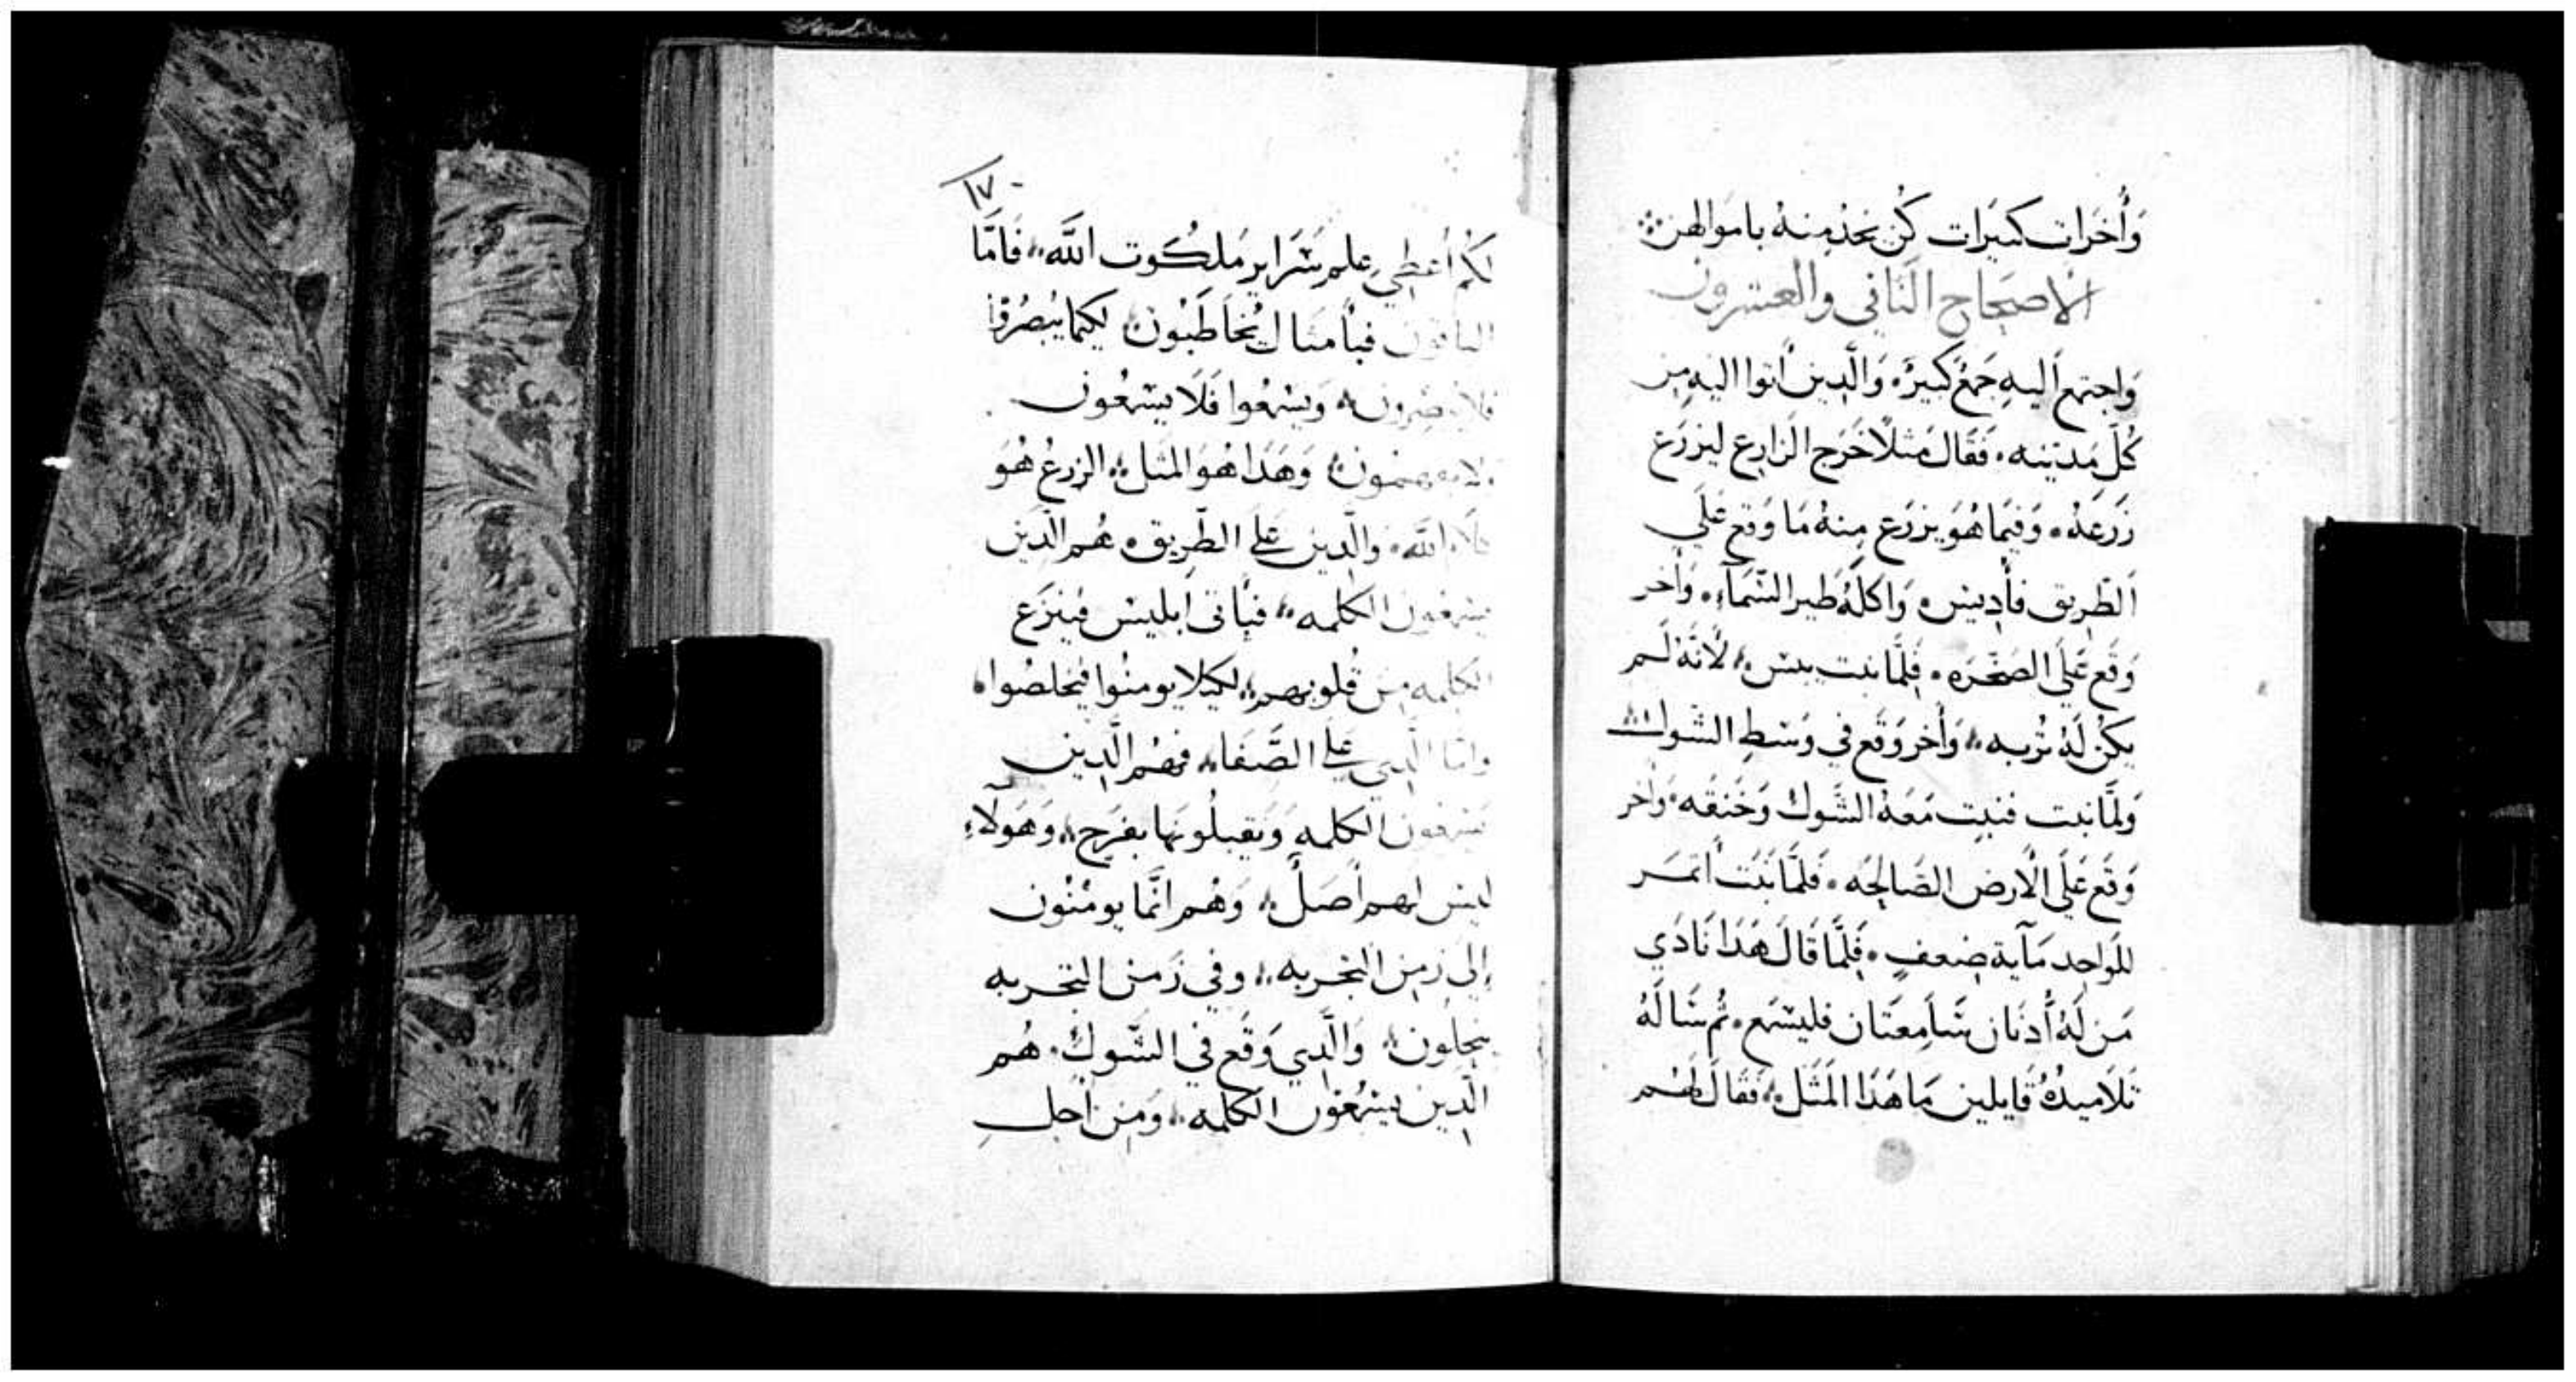 وَأُخرَات كثيَرات كُن يخدُمِنهُ باموَالهن
الاصحَاح الثَاني والعشرون
وَاجتمع اليهِ جَمعُ كبيرُ، وَالَّدِين أتوا اليهِ مِن
كُل مَدينه، فقَال مَثلاً خَرَج الزَارِع ليزرَع
زَرعَهُ، وَفيمَا هُوَ يزرَع مِنهُ مَا وَقع عَلَي
الطَرِيق فأدِيسَ، وَاكلَهُ طَير السَّمآءِ، وَاخر
وَقَع عَلَي الصَخَره، فلَمَّا نبت يبسَ، لأنَهُ لَم
يكُن لَهُ تُربه، وَأخر وَقَع في وَسَطِ الشوك
وَلمَّا نبت فنبِت مَعَهُ الشَوك وَخَنقه، وَاخر
وَقَع عَلَي الأرض الصَالِحَه، فَلمَّا نَبَت أثمَر
للوَاحِد مَآية ضِعفٍ، فَلَمَّا قَالَ هَدَا نَادَي
مَن لَهُ أُدنَان سَامِعَتَان فليسمَع، ثُم سَالَهُ
تَلاَميدُهُ قَايلين مَا هَدَا المَثَل، فَقَالَ لَهُم
١٧
لَكُم أعطِي علم سَرَاير مَلكُوت اللَّه، فَامَّا
الباقون فبأمثال يُخَاطَبُون، لكيما يُبصرُوا
فلا يبصرون، وَيسمَعُوا فَلا يسمَعُون
ولا يفهمون، وَهَدَا هُوَ المثَل، الزرعُ هُوَ
كلام اللَّه، والَّدِين عَلي الطَرِيق، هُم الَّدِين
يسمعُون الكلمه، فيأتي ابليس فينزَع
الكلمه مِن قُلوبهم، لكيلا يومنُوا فيخلصُوا،
وامّا الَّدِي عَلي الصَّفَا، فهُم الَّدِين
يسمعون الكلمه وَيقبلُونهَا بفَرَح، وَهَولآءِ
ليس لهم أصَلُ، وَهُم انَّمَا يومنُون
إلي زمِن التجربه، وفي زَمن التجربه
يَنحلُون، وَالَّدِي وَقَع في الشَوك، هُم
الَّدِين يسمَعُون الكلمه، وَمِن أجل